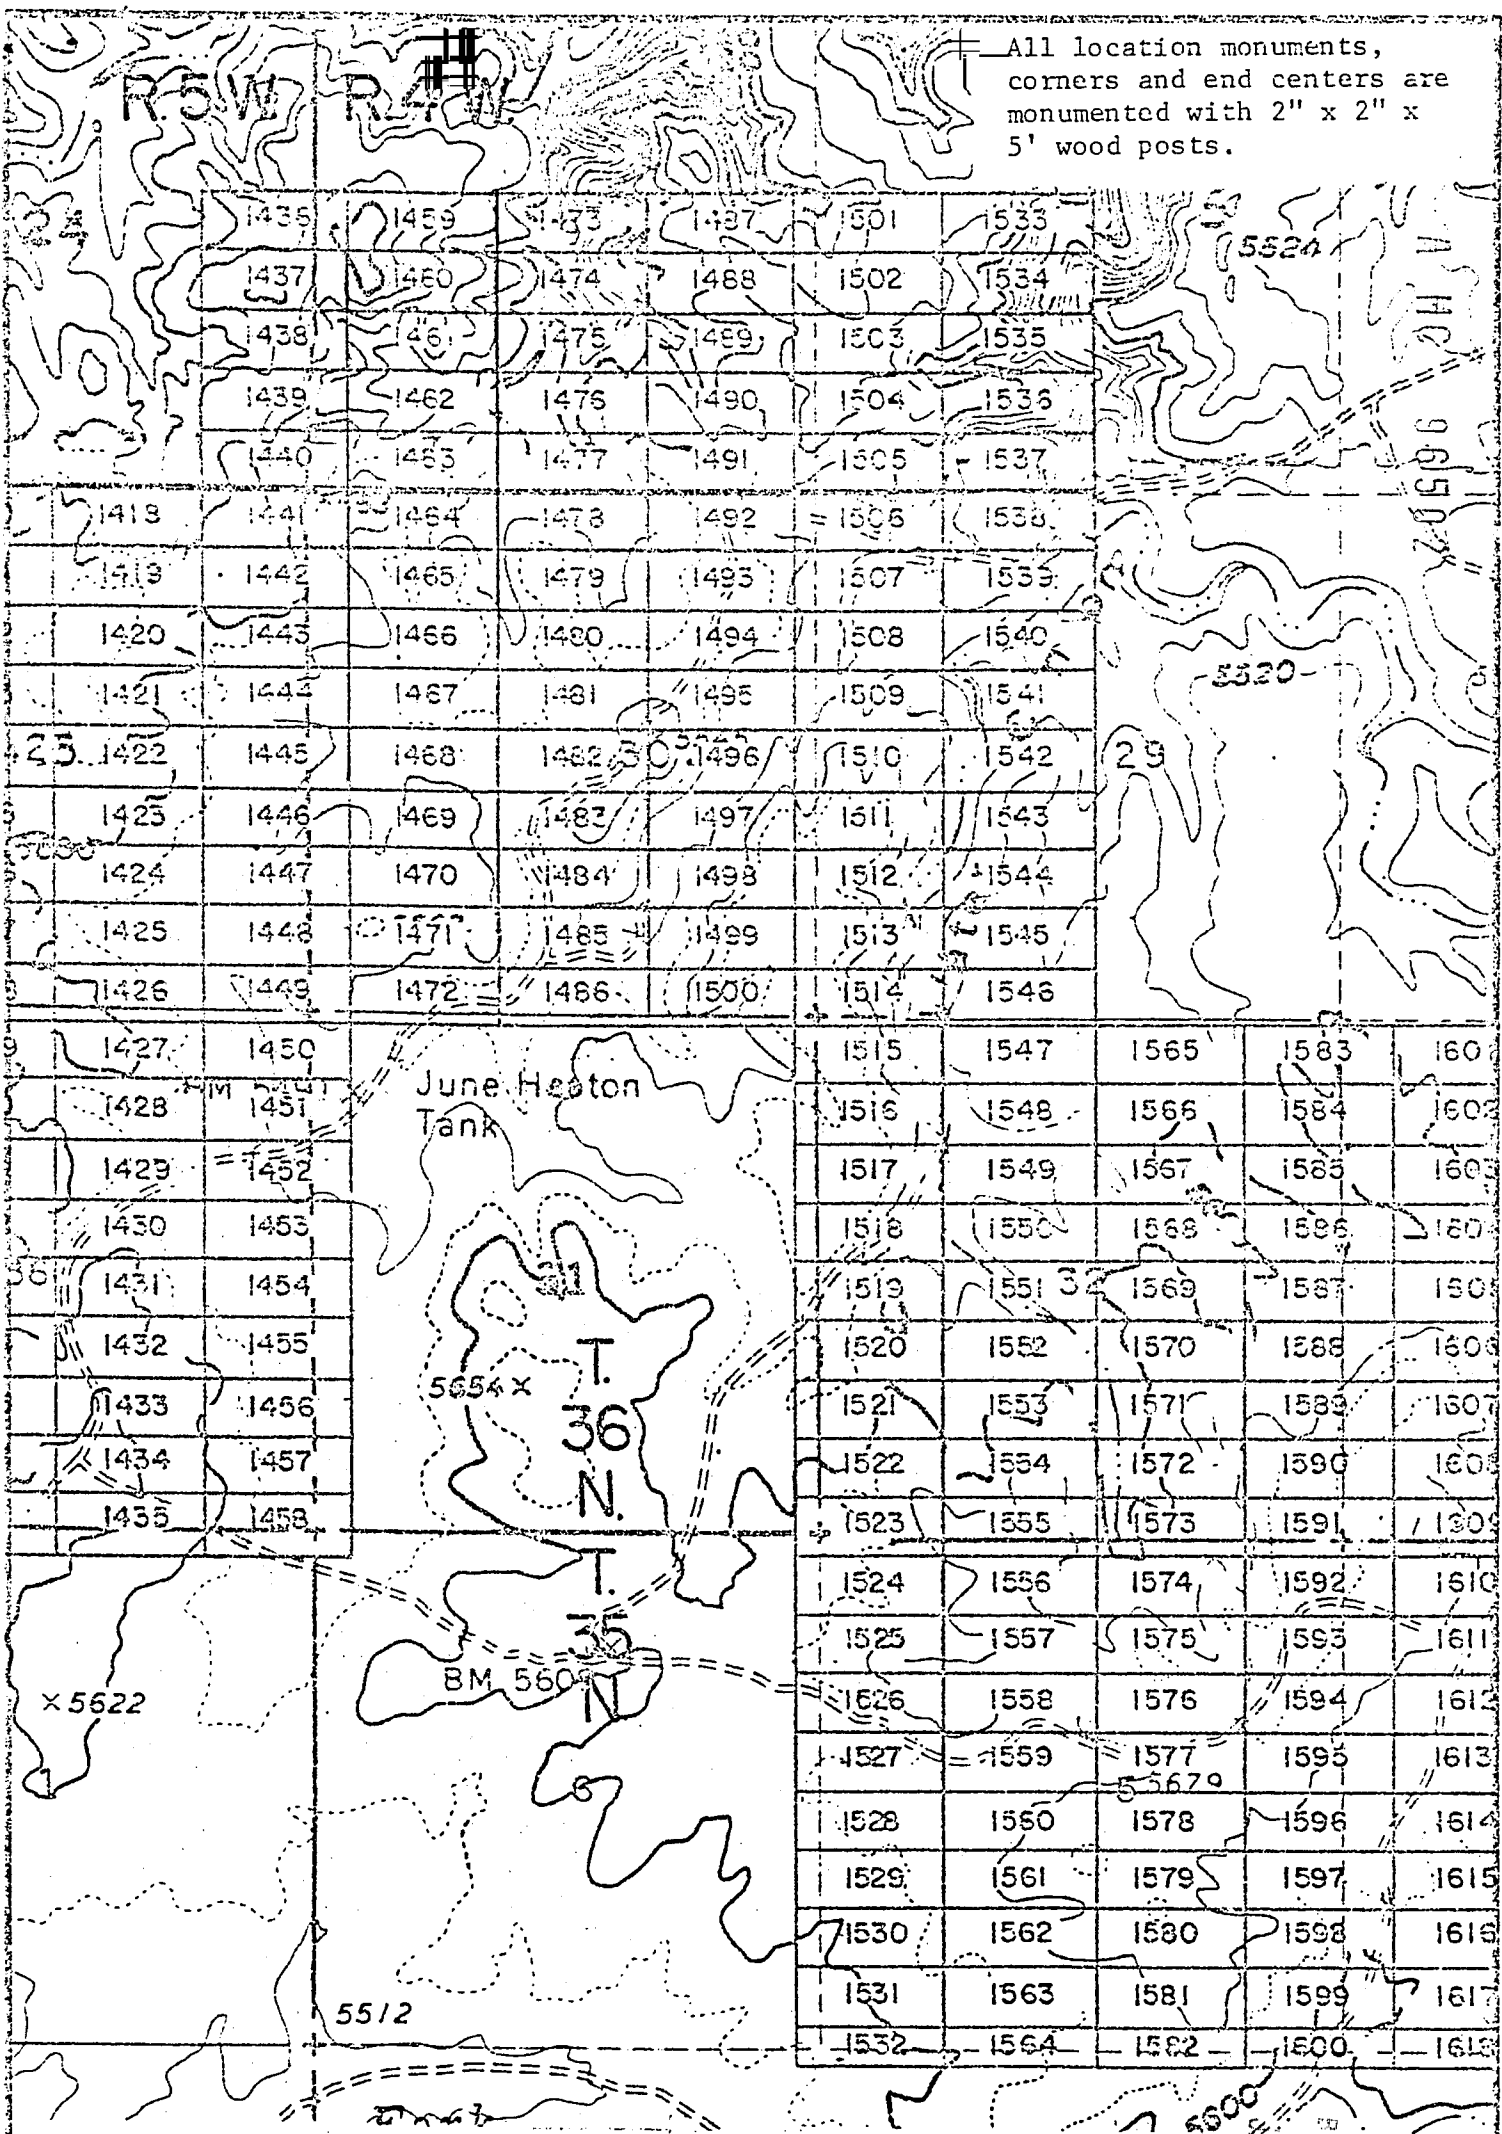 All location monuments,
corners and end centers are
monumented with 2" x 2" x
5' wood posts.
R.5W. R.4W.
24 1436 1459 1473 1487 1501 1533
5524
1437 1460 1474 1488 1502 1534
1438 1461 1475 1489 1503 1535
1439 1462 1476 1490 1504 1536
1440 1463 1477 1491 1505 1537
1418 1441 1464 1478 1492 1506 1538
1419 1442 1465 1479 1493 1507 1539
1420 1443 1466 1480 1494 1508 1540
1421 1444 1467 1481 1495 1509 1541
5520
25 1422 1445 1468 1482 30 1496 1510 1542 29
1423 1446 1469 1483 1497 1511 1543
1424 1447 1470 1484 1498 1512 1544
1425 1448 1471 1485 1499 1513 1545
1426 1449 1472 1486 1500 1514 1546
1427 1450 1515 1547 1565 1583
June Heaton
Tank
1428 1451 1516 1548 1566 1584 1602
1429 1452 1517 1549 1567 1585 1603
1430 1453 1518 1550 1568 1586
36 1431 1454 31 1519 1551 32 1569 1587
1432 1455 1520 1552 1570 1588 1606
5654 ×
T.
36
N.
1433 1456 1521 1553 1571 1589 1607
1434 1457 1522 1554 1572 1590 1608
1435 1458 1523 1555 1573 1591 1609
T.
35
N
1524 1556 1574 1592 1610
1525 1557 1575 1593 1611
BM 560
× 5622
1526 1558 1576 1594 1612
1527 1559 1577 1595 1613
1 6 5 5679
1528 1560 1578 1596 1614
1529 1561 1579 1597 1615
1530 1562 1580 1598 1616
1531 1563 1581 1599 1617
5512
1532 1564 1582 1600 1618
5600